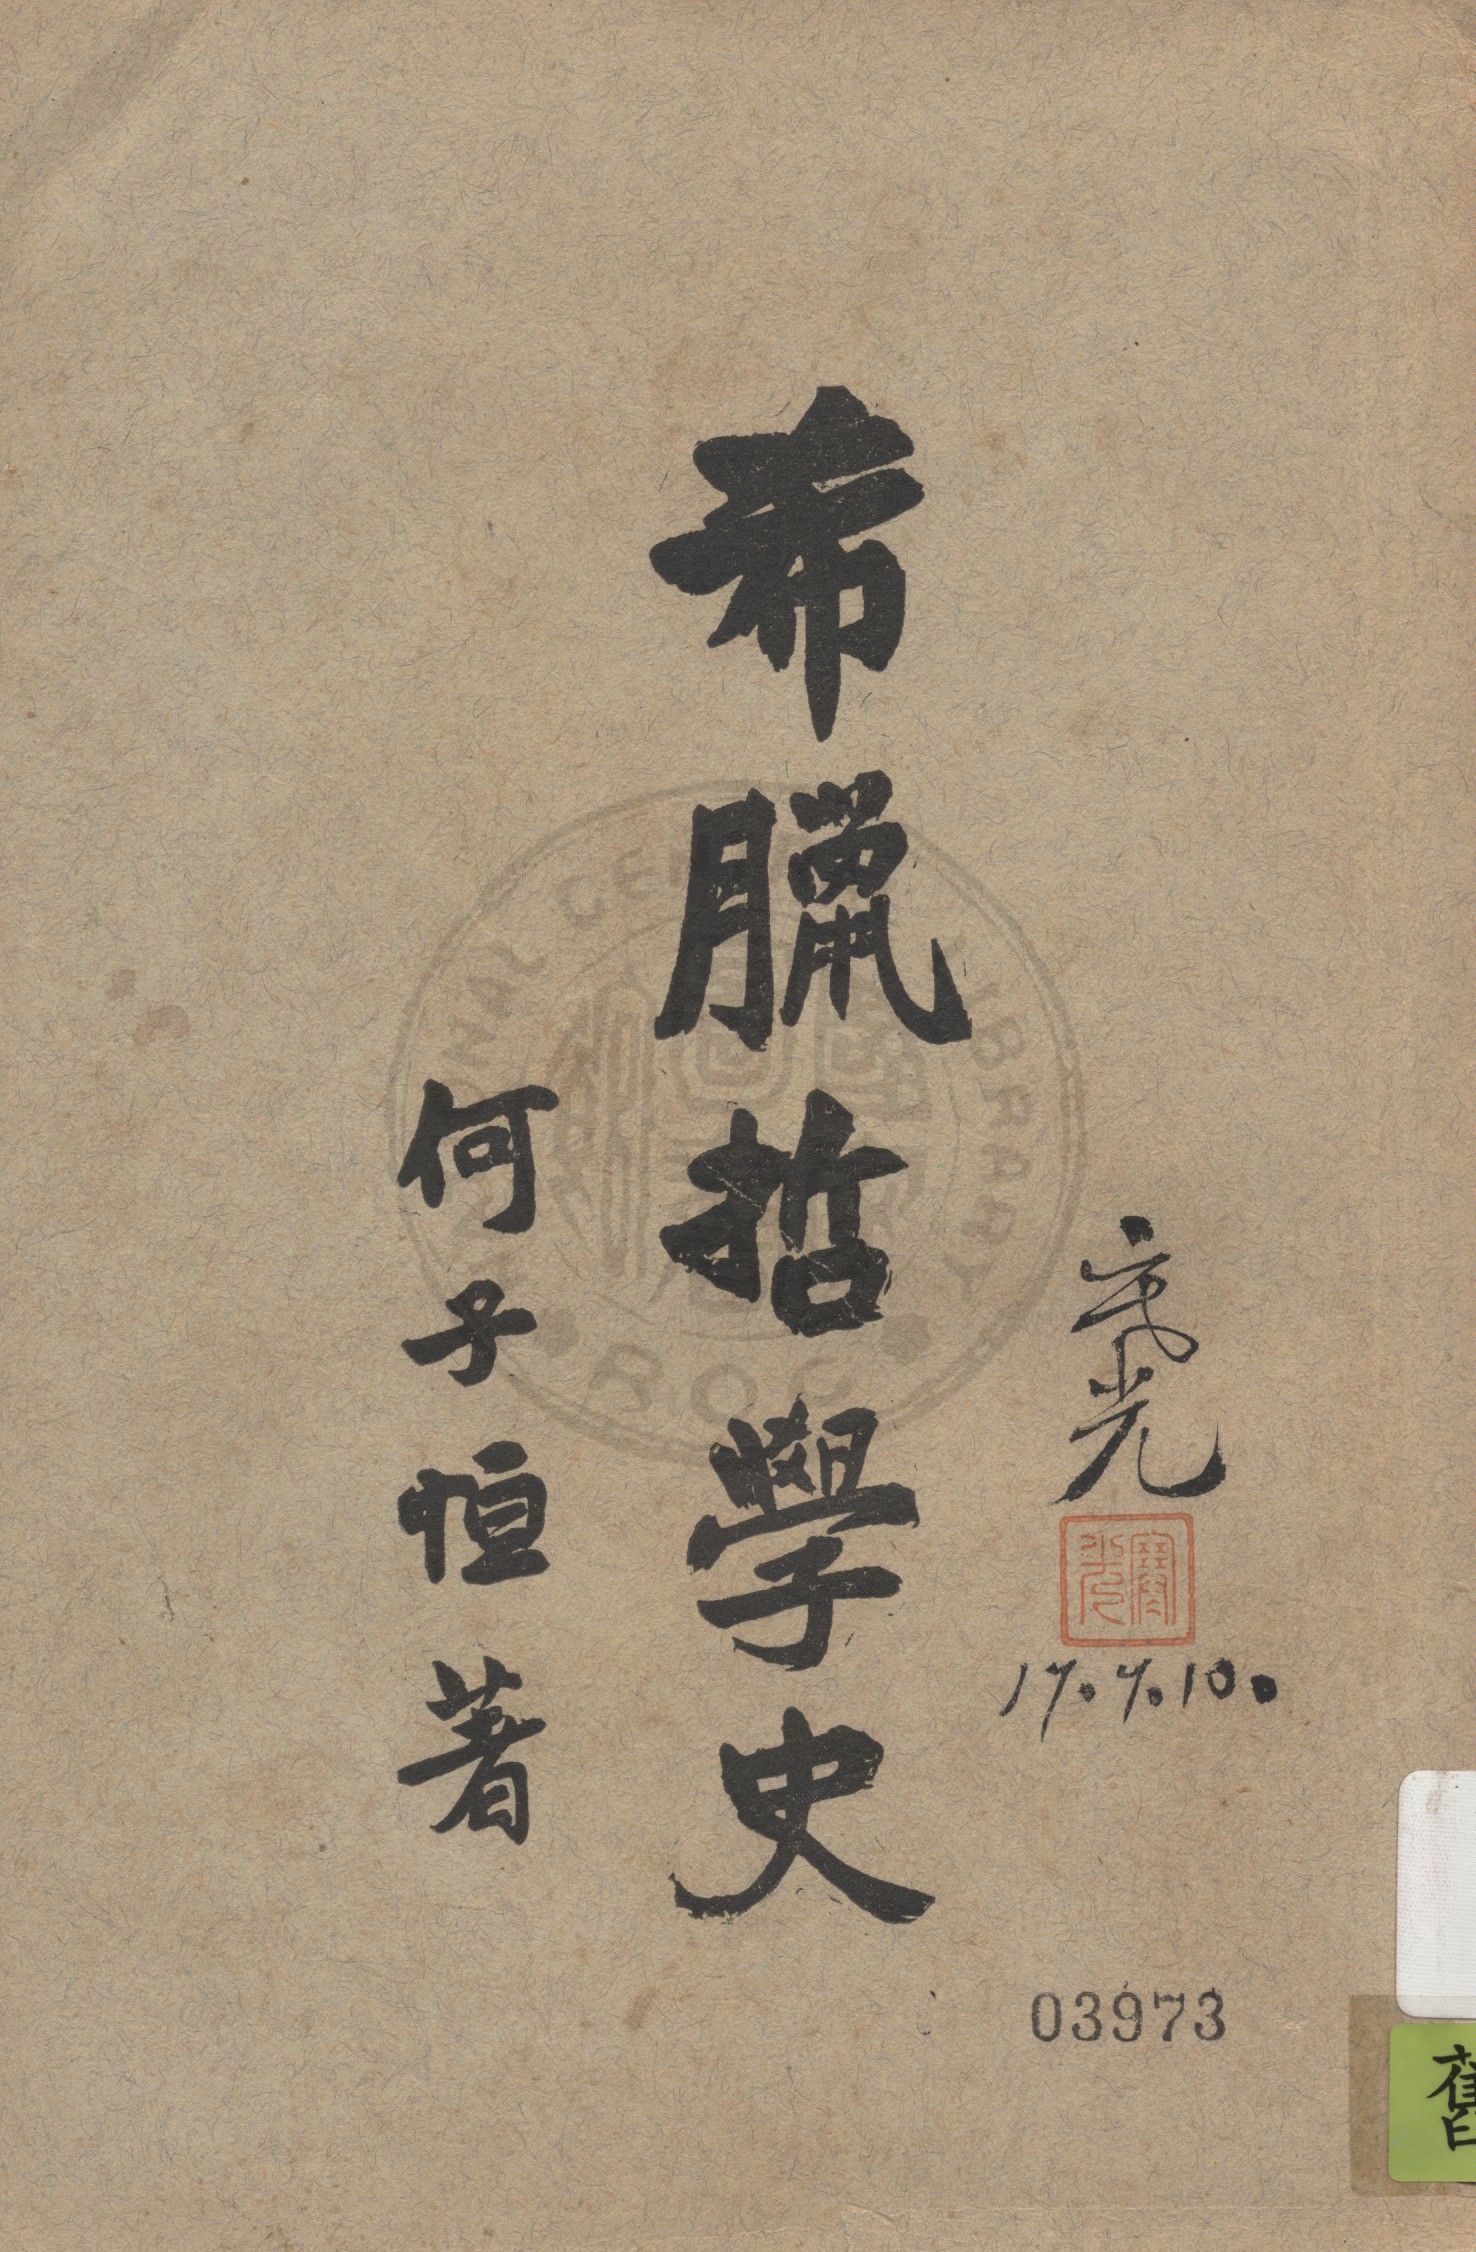 希臘哲學史
何子恒著
光
17.7.10.
03973
舊
NATIONAL CENTRAL LIBRARY
R.O.C.